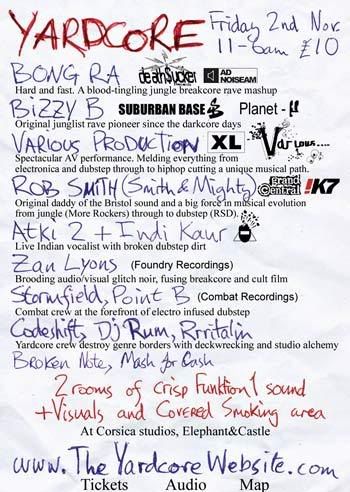 YARDCORE Friday 2nd Nov.
11-6am £10
BONG RA deathsucker AD NOISEAM
Hard and fast. A blood-tingling jungle breakcore rave mashup
BIZZY B SUBURBAN BASE Planet - µ
Original junglist rave pioneer since the darkcore days
VARIOUS PRODUCTION XL Various....
Spectacular AV performance. Melding everything from
electronica and dubstep through to hiphop cutting a unique musical path.
ROB SMITH (Smith & Mighty) grand central !K7
Original daddy of the Bristol sound and a big force in musical evolution
from jungle (More Rockers) through to dubstep (RSD).
Atki 2 + Indi Kaur
Live Indian vocalist with broken dubstep dirt
Zan Lyons (Foundry Recordings)
Brooding audio/visual glitch noir, fusing breakcore and cult film
Stormfield, Point B (Combat Recordings)
Combat crew at the forefront of electro infused dubstep
Codeshift, Dj Rum, Rrritalin
Yardcore crew destroy genre borders with deckwrecking and studio alchemy
Broken Note, Mash for Cash
2 rooms of crisp Funktion 1 sound
+Visuals and Covered Smoking area
At Corsica studios, Elephant&Castle
www.TheYardcoreWebsite.com
Tickets Audio Map